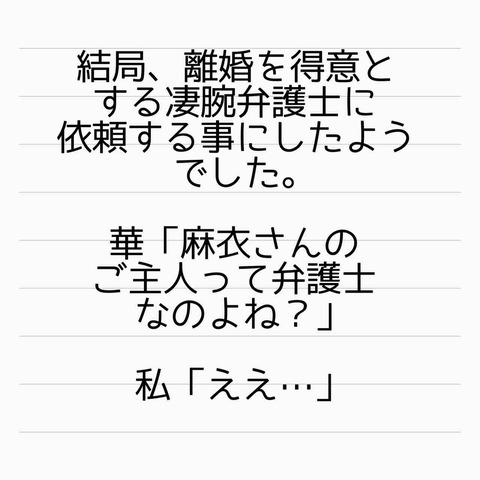 結局、離婚を得意と
する凄腕弁護士に
依頼する事にしたよう
でした。
華「麻衣さんの
ご主人って弁護士
なのよね？」
私「ええ…」